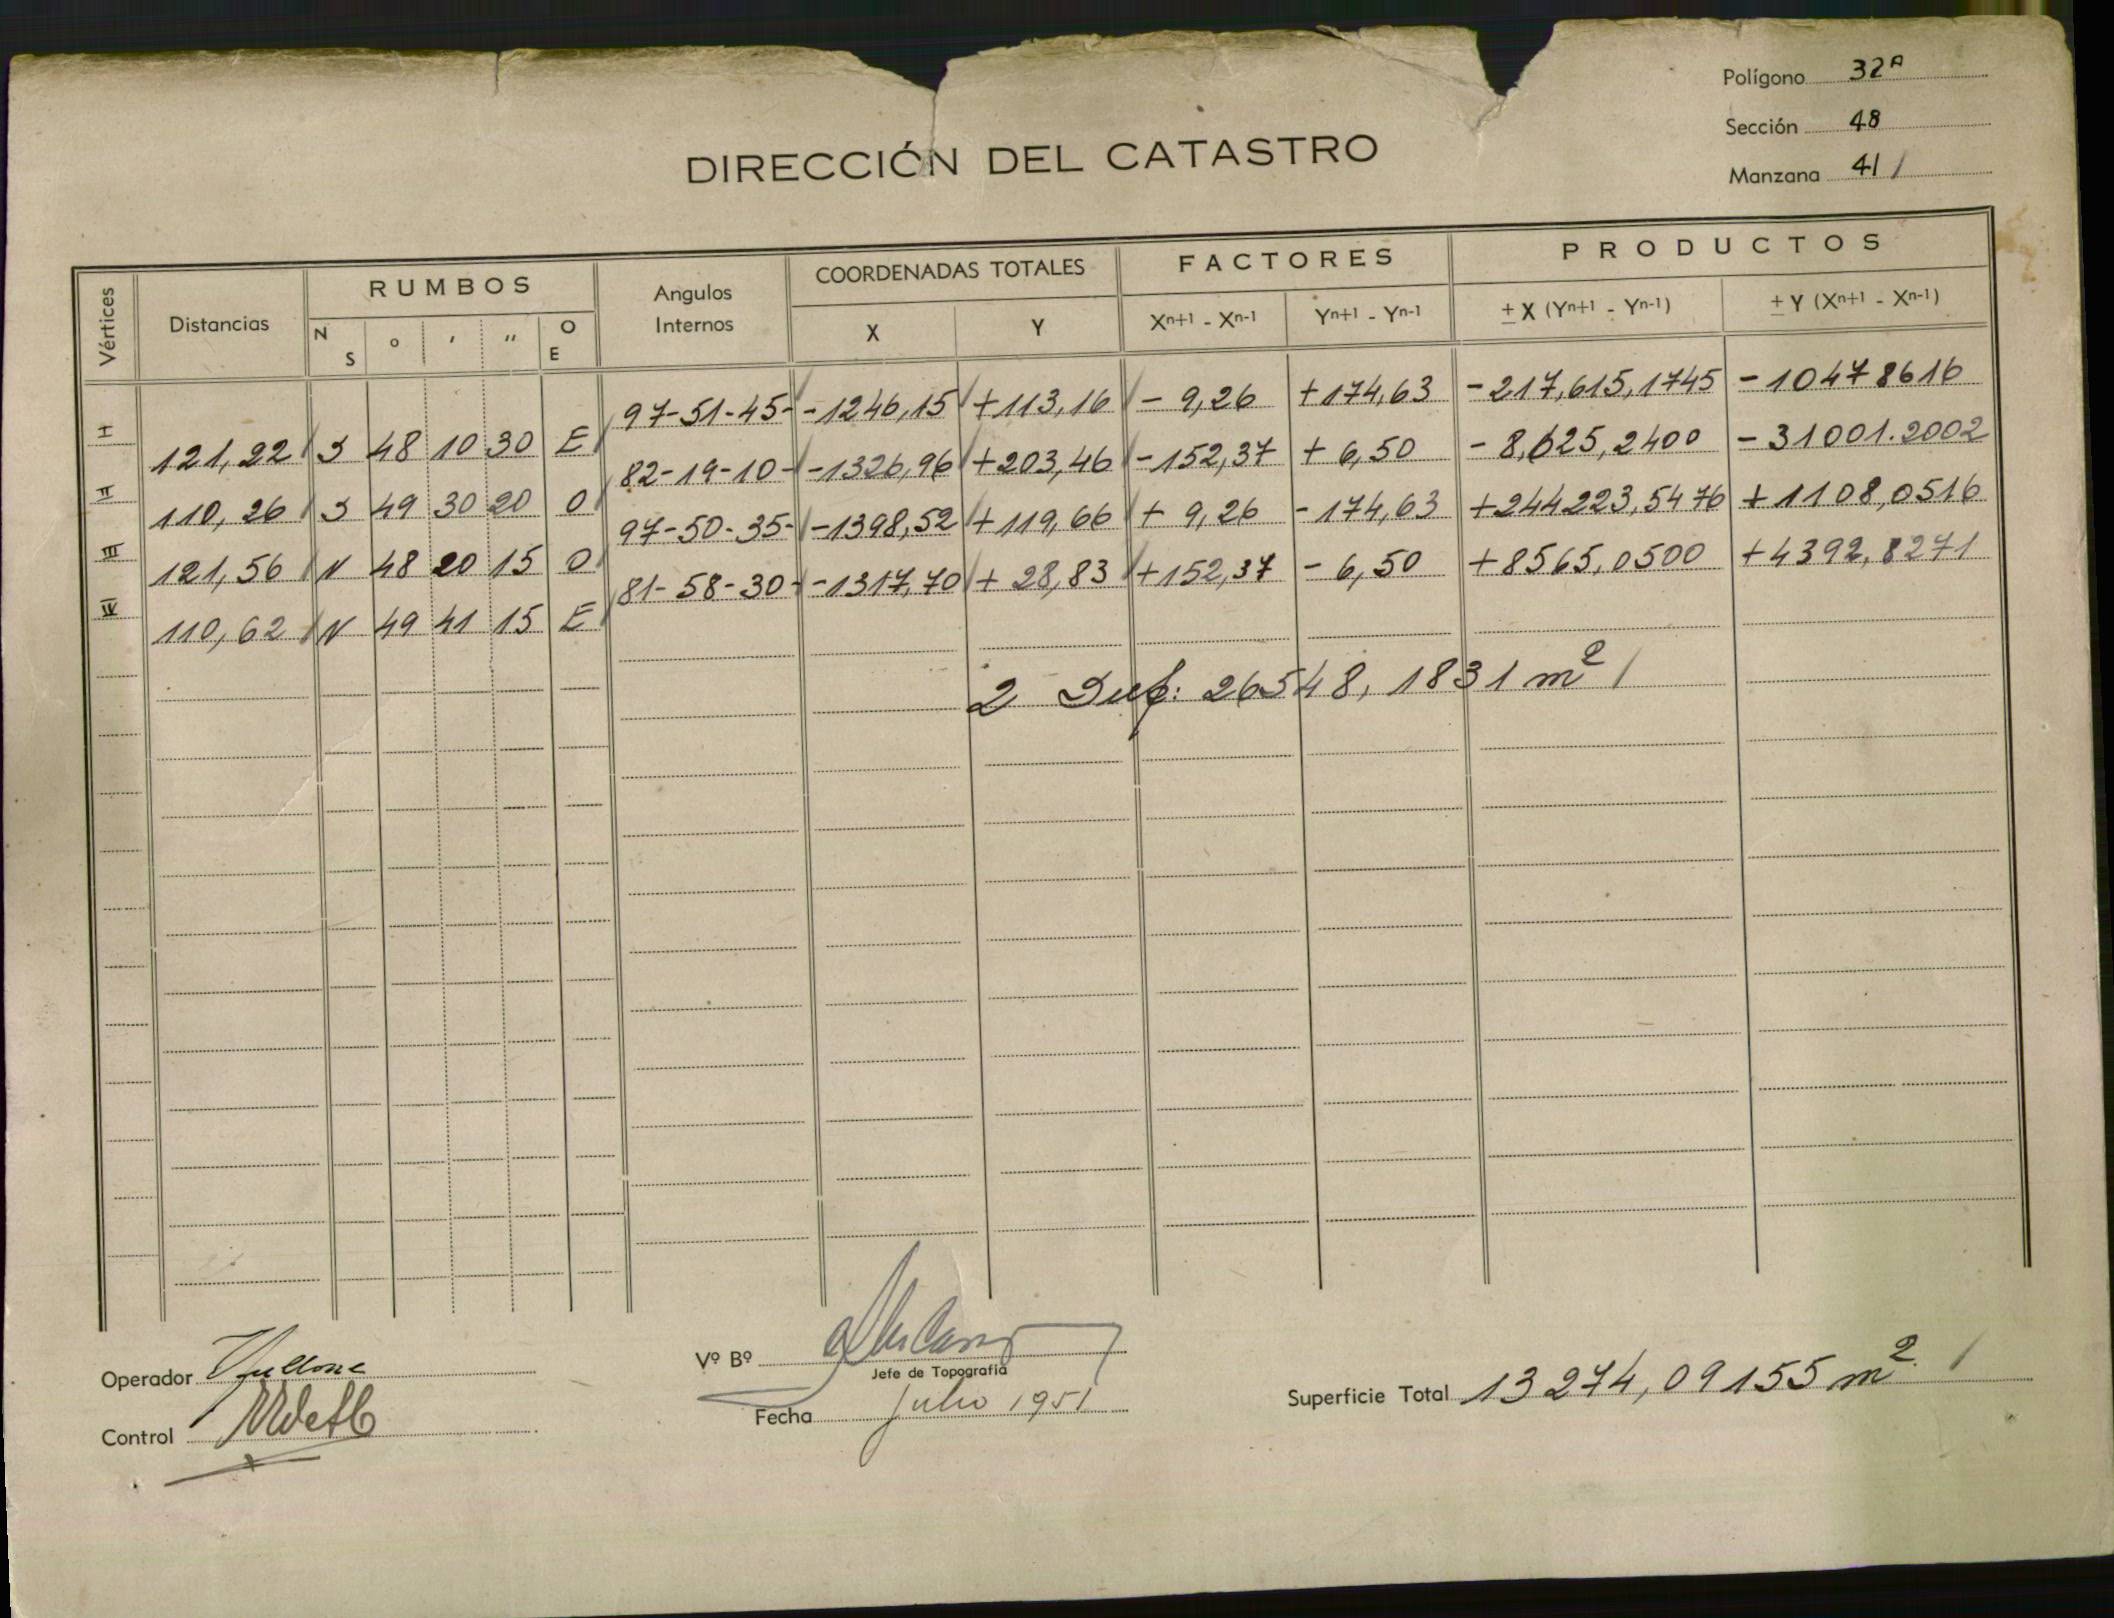 Polígono 32ª
Sección 48
Manzana 41 /
DIRECCIÓN DEL CATASTRO
Vértices Distancias RUMBOS Angulos Internos COORDENADAS TOTALES FACTORES PRODUCTOS
N S ° ' " O E X Y Xn+1 - Xn-1 Yn+1 - Yn-1 ± X (Yn+1 - Yn-1) ± Y (Xn+1 - Xn-1)
97-51-45- -1246,15 +113,16 - 9,26 +174,63 -217,615,1745 -10478616
I 121,22 S 48 10 30 E
82-19-10- -1326,96 +203,46 -152,37 + 6,50 - 8,625,2400 -31001.2002
II 110,26 S 49 30 20 O
97-50-35- -1398,52 +119,66 + 9,26 -174,63 +244223,5476 +1108,0516
III 121,56 N 48 20 15 O
81-58-30- -1317,70 + 28,83 +152,37 - 6,50 +8565,0500 +4392,8271
IV 110,62 N 49 41 15 E
2 Sup: 26548,1831 m² /
Operador
Control
Vº Bº
Jefe de Topografia
Fecha Julio 1951
Superficie Total 13274,09155 m² /